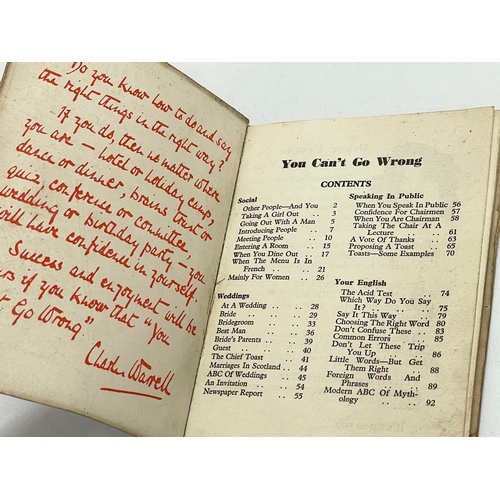 Do you know how to do and say
the right things in the right way?
If you do, then no matter where
you are – hotel or holiday camp,
dance or dinner, brains trust or
quiz, conference or committee,
wedding or birthday party – you
will have confidence in yourself.
Success and enjoyment will be
if you know that "You
Go Wrong."
Charles Warrell
You Can't Go Wrong
CONTENTS
Social
Other People—And You 2
Taking A Girl Out .. 3
Going Out With A Man 5
Introducing People .. 7
Meeting People .. 10
Entering A Room .. 15
When You Dine Out .. 17
When The Menu Is In
French .. .. 21
Mainly For Women .. 26
Weddings
At A Wedding .. .. 28
Bride .. .. 29
Bridegroom .. .. 33
Best Man .. .. 36
Bride's Parents .. .. 39
Guest .. .. 40
The Chief Toast .. 41
Marriages In Scotland .. 44
ABC Of Weddings .. 45
An Invitation .. .. 54
Newspaper Report .. 55
Speaking In Public
When You Speak In Public 56
Confidence For Chairmen 57
When You Are Chairman 58
Taking The Chair At A
Lecture .. .. 61
A Vote Of Thanks .. 63
Proposing A Toast .. 65
Toasts—Some Examples 70
Your English
The Acid Test .. 74
Which Way Do You Say
It? .. .. 75
Say It This Way .. 79
Choosing The Right Word 80
Don't Confuse These .. 83
Common Errors .. 85
Don't Let These Trip
You Up .. .. 86
Little Words—But Get
Them Right .. 88
Foreign Words And
Phrases .. .. 89
Modern ABC Of Myth-
ology .. .. 92